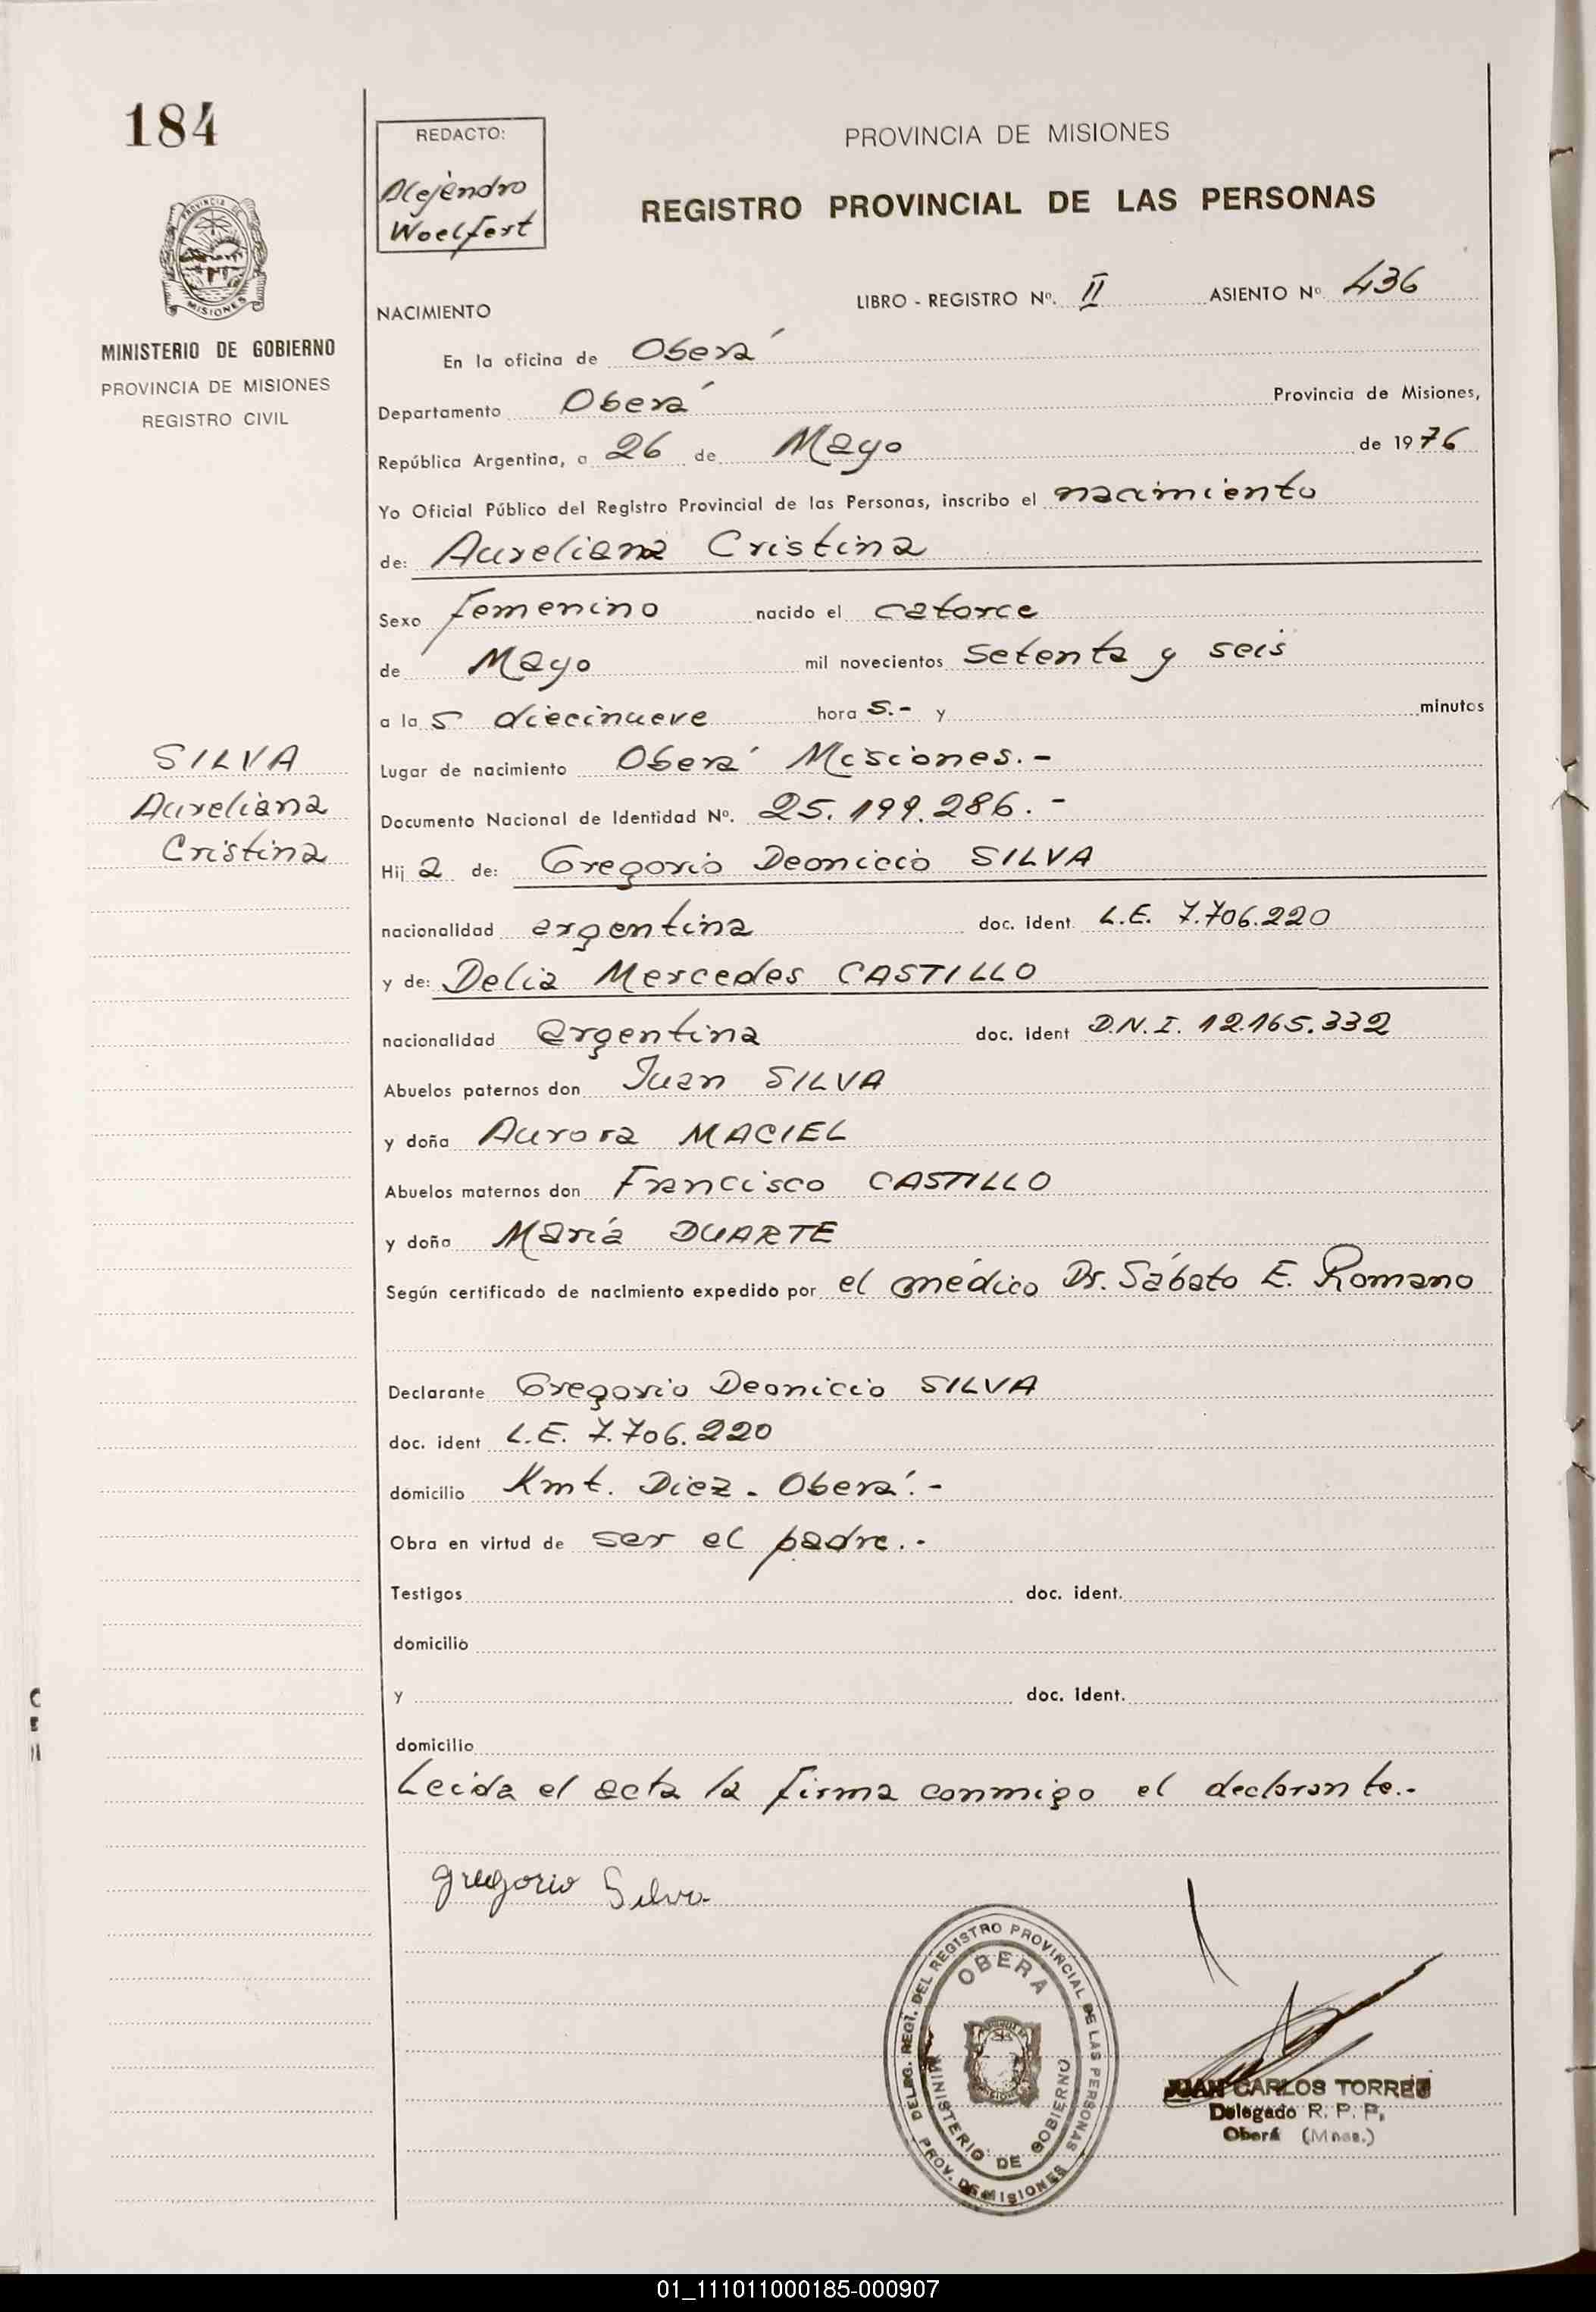 184
PROVINCIA DE MISIONES
MINISTERIO DE GOBIERNO
PROVINCIA DE MISIONES
REGISTRO CIVIL
SILVA
Aureliana
Cristina
REDACTO:
Alejandro
Woelfert
PROVINCIA DE MISIONES
REGISTRO PROVINCIAL DE LAS PERSONAS
NACIMIENTO LIBRO - REGISTRO Nº. II ASIENTO Nº 436
En la oficina de Oberá
Departamento Oberá Provincia de Misiones,
República Argentina, a 26 de Mayo de 1976
Yo Oficial Público del Registro Provincial de las Personas, inscribo el nacimiento
de: Aureliana Cristina
Sexo femenino nacido el catorce
de Mayo mil novecientos setenta y seis
a la s diecinueve hora s.- y minutos
Lugar de nacimiento Oberá Misiones.-
Documento Nacional de Identidad Nº. 25.199.286.-
Hij a de: Gregorio Deonicio SILVA
nacionalidad argentina doc. ident L.E. 7.706.220
y de: Delia Mercedes CASTILLO
nacionalidad argentina doc. ident D.N.I. 12.165.332
Abuelos paternos don Juan SILVA
y doña Aurora MACIEL
Abuelos maternos don Francisco CASTILLO
y doña María DUARTE
Según certificado de nacimiento expedido por el médico Dr. Sábato E. Romano
Declarante Gregorio Deonicio SILVA
doc. ident L.E. 7.706.220
domicilio Kmt. Diez - Oberá.-
Obra en virtud de ser el padre.-
Testigos doc. ident.
domicilio
y doc. ident.
domicilio
Leída el acta la firma conmigo el declarante.-
gregorio Silva
DELEG. REGT. DEL REGISTRO PROVINCIAL DE LAS PERSONAS
OBERA
MINISTERIO DE GOBIERNO
PROV. DE MISIONES
JUAN CARLOS TORRES
Delegado R. P. P.
Oberá (Mnes.)
01_111011000185-000907